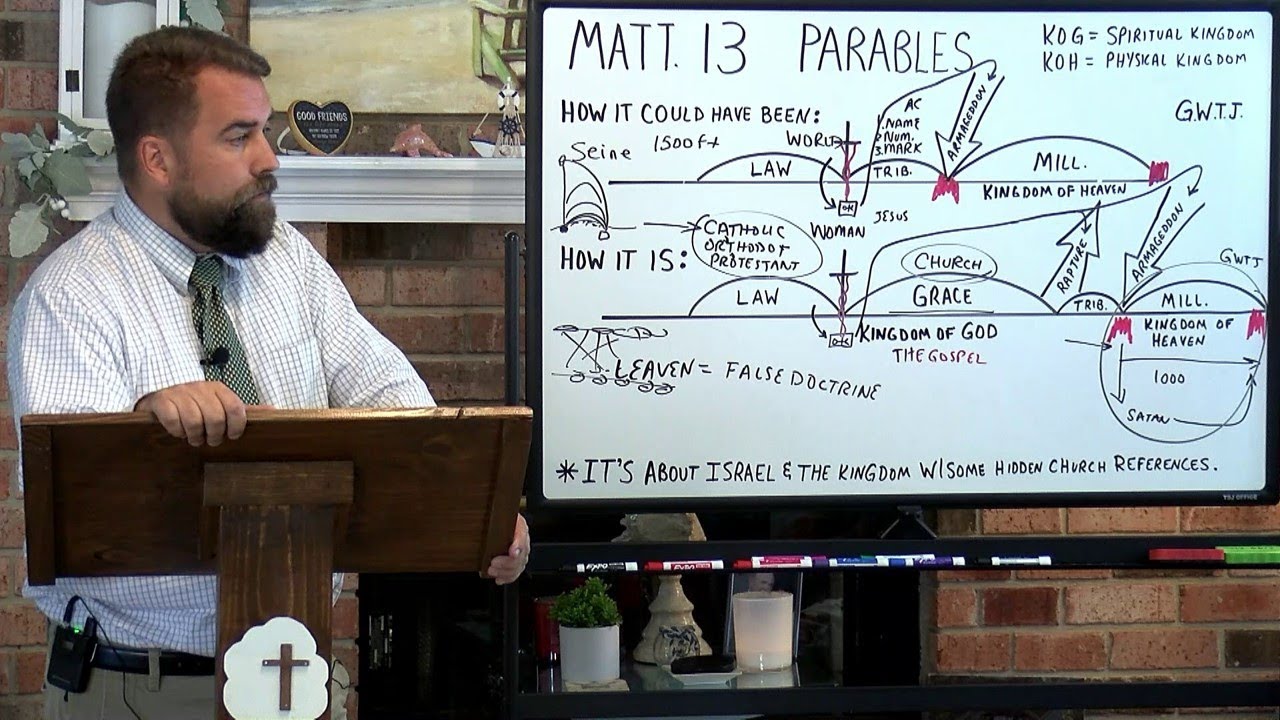 MATT. 13 PARABLES
KOG = SPIRITUAL KINGDOM
KOH = PHYSICAL KINGDOM
HOW IT COULD HAVE BEEN:
G.W.T.J.
Seine
1500 ft
WORLD
AC
1. NAME
2. NUM.
3. MARK
ARMAGEDDON
LAW
TRIB.
MILL.
KINGDOM OF HEAVEN
OK
WOMAN
JESUS
CATHOLIC
ORTHODOX
PROTESTANT
HOW IT IS:
CHURCH
RAPTURE
ARMAGEDDON
GWTJ
LAW
GRACE
TRIB.
MILL.
OK
KINGDOM OF GOD
THE GOSPEL
KINGDOM OF
HEAVEN
1000
SATAN
LEAVEN = FALSE DOCTRINE
*IT'S ABOUT ISRAEL & THE KINGDOM W/SOME HIDDEN CHURCH REFERENCES.
GOOD FRIENDS
EXPO
EXPO